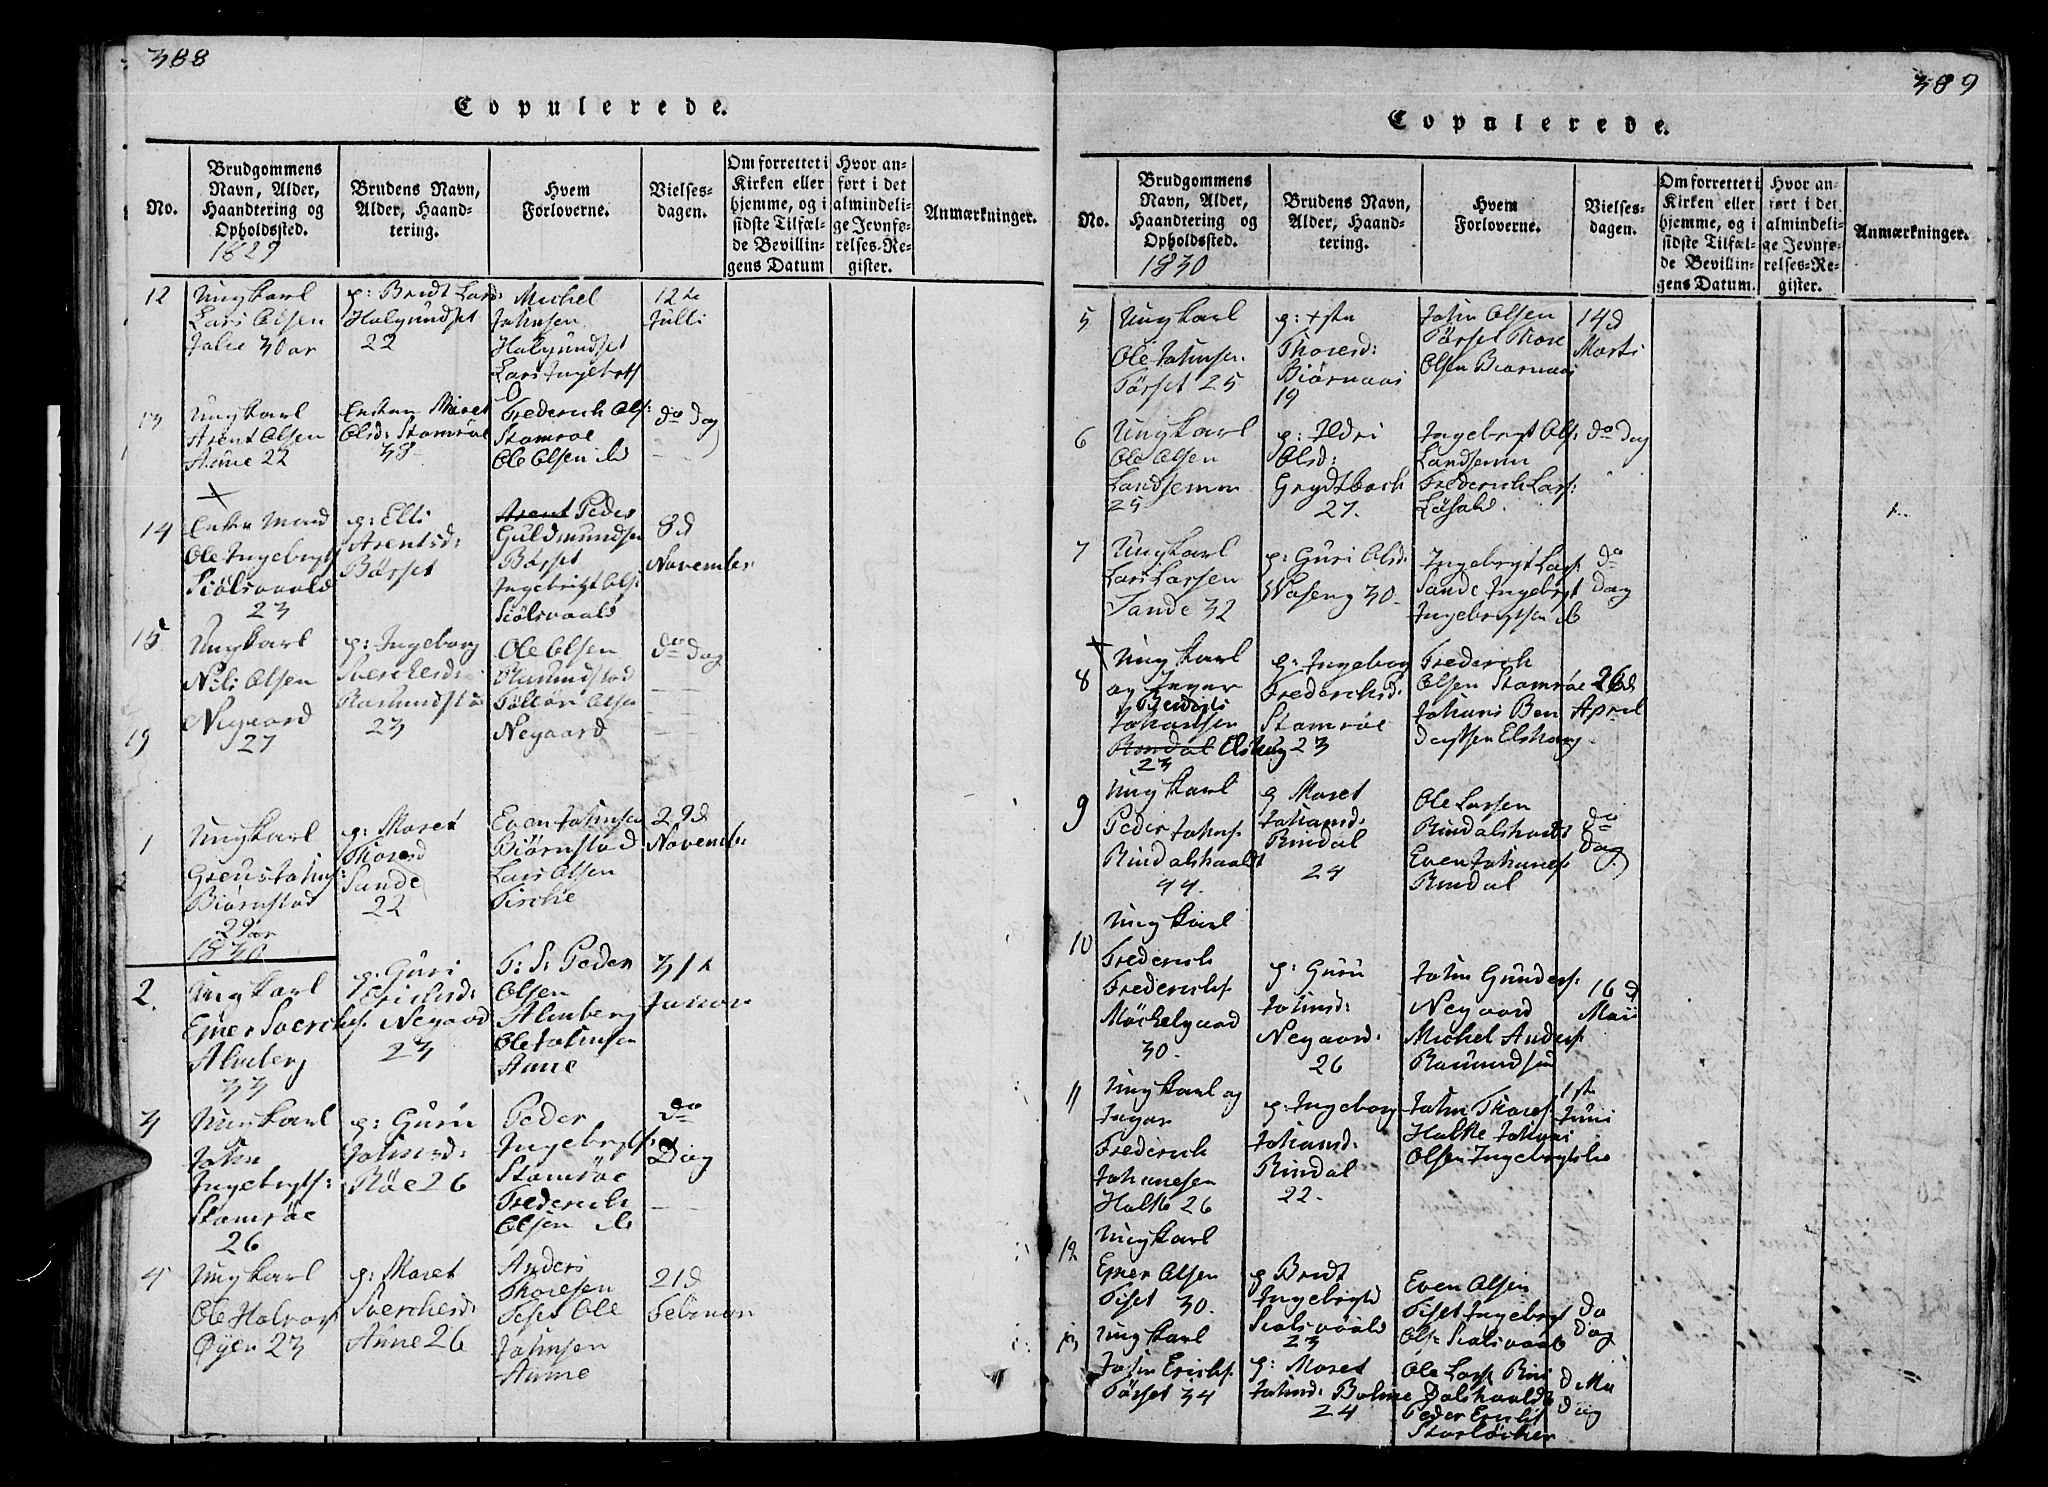 388
Copulerede.
No.
Brudgommens
Navn, Alder,
Haandtering og
Opholdssted.
1829
Brudens Navn,
Alder, Haand-
tering.
Hvem
Forloverne.
Vielses-
dagen.
Om forrettet i
Kirken eller
hjemme, og i
sidste Tilfæl-
de Bevillin-
gens Datum
Hvor an-
ført i det
almindeli-
ge Jevnfø-
relses-Re-
gister.
Anmærkninger.
12
Ungkarl
Lars Olsen
30 ar
p: Bridt Lars:
Halgundset
22
Michel
Johnsen
Halgundset
Lars Ingebrts
12te
Julli
13
Ungkarl
Arent Olsen
Aune 22
Enken Maret
Olsd: Stomröe
38
Frederich Ols:
Stomröe
Ole Olsen ib
do Dag
14
Enke Mand
Ole Ingebrygts
Siölsvaald
23
p: Elli
Arentsd:
Börset
Peder
Guldmundsen
Börset
Ingebrigt Ols:
Siölsvaald
8d
November
15
Ungkarl
Nils Olsen
Negaard
27
p: Ingeborg
Sverchesd:
Rasmundstad
23
Ole Olsen
Rasmundstad
Olsen
Negaard
do Dag
19
1
Ungkarl
Johns:
Biörnstad
29 ar
p: Maret
Thoresd
Sande
22
Even Johnsen
Biörnstad
Lars Olsen
Fische
29d
Novemb:
1830
2.
Ungkarl
Ejner Sverches.
Almberg
33
p: Guri
Erichsd:
Negaard
23
T: S: Peder
Olsen
Almberg
Ole Johnsen
Aune
31te
Januar
3
Ungkarl
John
Ingebrygts:
Stomröe
26
p: Guru
Johnsd:
Röe 26
Peder
Ingebrygts:
Stomröe
Frederich
Olsen ib
do
Dag
4
Ungkarl
Ole Halvors
Öyen 23
p: Maret
Sverchesd:
Aune 26
Anders
Thoresen
Tiset Ole
Johnsen
Aune
21d
Februar
389
Copulerede.
No.
Brudgommens
Navn, Alder,
Haandtering og
Opholdssted.
1830
Brudens Navn,
Alder, Haand-
tering.
Hvem
Forloverne.
Vielses-
dagen.
Om forrettet i
Kirken eller
hjemme, og i
sidste Tilfæl-
de Bevillin-
gens Datum.
Hvor an-
ført i det
almindeli-
ge Jevnfø-
relses-Re-
gister.
Anmærkninger.
5
Ungkarl
Ole Johnsen
Törset 25
p:
Thoresd:
Biörnaas
19
John Olsen
Törset Thore
Olsen Biornaas
14d
Marts
6
Ungkarl
Ole Olsen
Landsemm
25
p: Ildri
Olsd:
Grydtbach
27.
Ingebrygt Ols:
Landsemm
Frederich Lars:
do Dag
7
Ungkarl
Lars Larsen
Sande 32
p: Guri Olsd:
30
Ingebrygt Lars:
Sande Ingebrygt
Ingebrygtsen ib
do
Dag
8
Ungkarl
og Jeger
Bendigt
Johansen
Rindal Elshaug
23
p: Ingeborg
Frederichsd:
Stomröe
23
Frederich
Olsen Stomröe
Johans Ben
dagtsen Elshaug
26d
April
9
Ungkarl
Peder Johns:
Rindalshaalt
44.
p Maret
Johansd:
Rindal
24
Ole Larsen
Rindalshaalt
Even Johanes:
Rindal
do
Dag
10
Ungkarl
Frederich
Frederichs:
Möchelgaard
30.
p: Guru
Johnsd:
Negaard:
26
John Gunders:
Negaard
Michel Anders:
16d
Maii
11
Ungkarl og
Jeger
Frederich
Johansen
Holte 26
p: Ingeborg
Johansd:
Rindal
22.
John Thores:
Holte Johans
Olsen Ingebrygtslie
1ste
Juni
12
Ungkarl
Ejner Olsen
Tiset 30.
p Bridt
Ingebrygtd
23
Even Olsen
Tiset Ingebrygt
Ols:
do
Dag
13
Ungkarl
John Erichs:
Törset 34
p: Maret
Johnsd: Bolme
24
Ole Lars: Rin
dalshaalt
Peder
Storlöcher
Dag